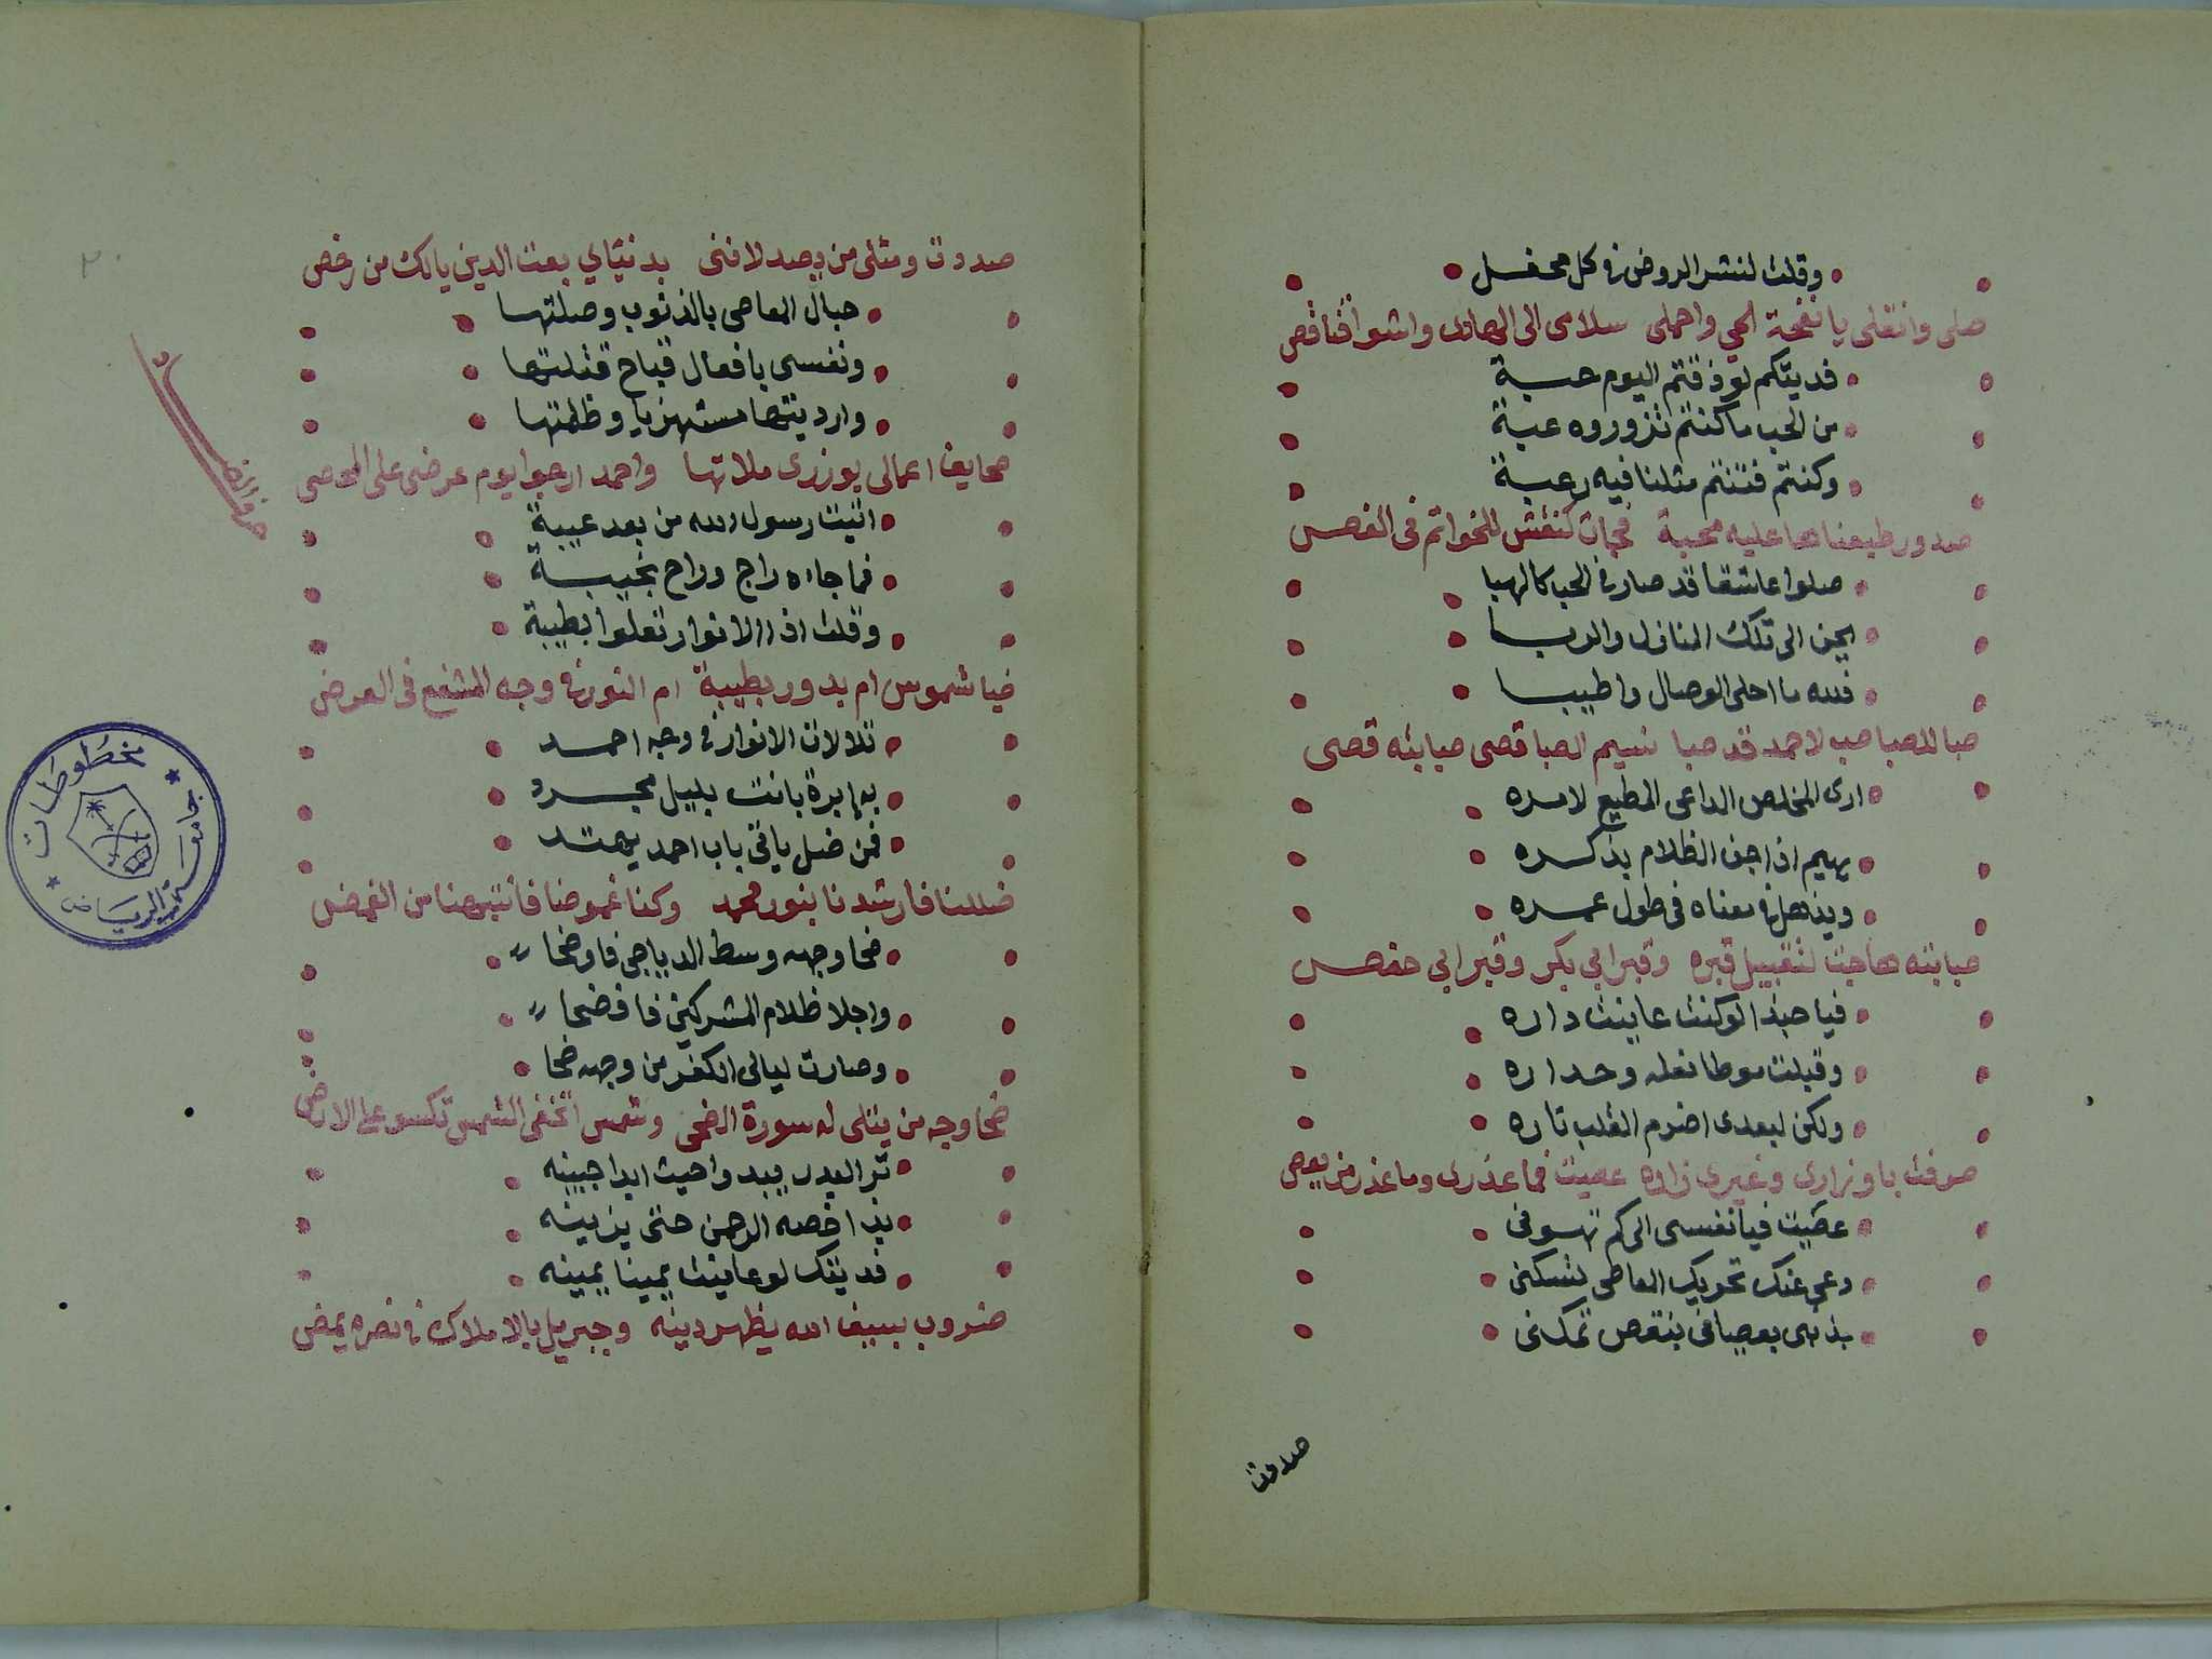 وقلت لنشر الروض في كل محفل
صلى وانقلى يا نفحة الحي واحملى سلامى الى الهادى واشواقنا قص
فديتكم لو ذقتم اليوم حبة
من الحب ما كنتم تزوروه غبة
وكنتم فتنتم مثلنا فيه رغبة
صدور طبعناها عليه محبة فجات كنقش للخواتم فى الفص
صلوا عاشقا قد صار في الحب كالهبا
يحن الى تلك المنازل والربا
فلله ما احلى الوصال واطيبا
صبا للصبا صب لاحمد قد صبا نسيم الصبا قصى صبابته قصى
ارى المخلص الداعى المطيع لامره
يهيم اذا جن الظلام بذكره
ويذهل في معناه فى طول عمره
صبابته هاجت لتقبيل قبره وقبر ابي بكر وقبر ابي حفص
فيا حبذا لو كنت عاينت داره
وقبلت موطا نعله وجداره
ولكن لبعدى اضرم القلب ناره
صرفت باوزارى وغيرى زاره عصيت فما عذرى وما عذر من يعصى
عصيت فيا نفسى الى كم تسوفى
دعى عنك تحريك المعاصى لتسكنى
بذنبى بعصيانى بنقص تمكنى
صددت
صددت ومثلى من يصد لا فنى بدنياي بعت الدين يا لك من رخص
حبال المعاصى بالذنوب وصلتها
ونفسى بافعال قباح قتلتها
وارديتها مستهزيا وظلمتها
صحايف اعمالى بوزرى ملاتها واحمد ارجوا يوم عرضى على المحصى
حرف الضاد
اتيت رسول الله من بعد غيبة
فما جاءه راج وراح بخيبة
وقلت اذا الانوار تعلوا بطيبة
ضيا شموس ام بدور بطيبة ام النور في وجه المشفع فى العرض
تلالات الانوار في وجه احمد
به ابرة بانت بليل مجرد
فمن ضل ياتى باب احمد يهتد
ضللنا فارشدنا بنور محمد وكنا غموضا فانتبهنا من الغمض
ضحا وجهه وسط الدياجى فاوضحا
واجلا ظلام المشركين فافضحا
وصارت ليالى الكفر من وجهه ضحا
ضحا وجه من يتلى له سورة الضحى وشمس اتخفى الشمس تكسو على الارض
تر البدر يبدوا حيث ابدا جبينه
بذا خصه الرحمن حتى يزينه
فديتك لو عاينت يمينا يمينه
ضروب بسيف الله يظهر دينه وجبريل بالاملاك في نصره يمضى
مخطوطات
جامعة الرياض
٢٠